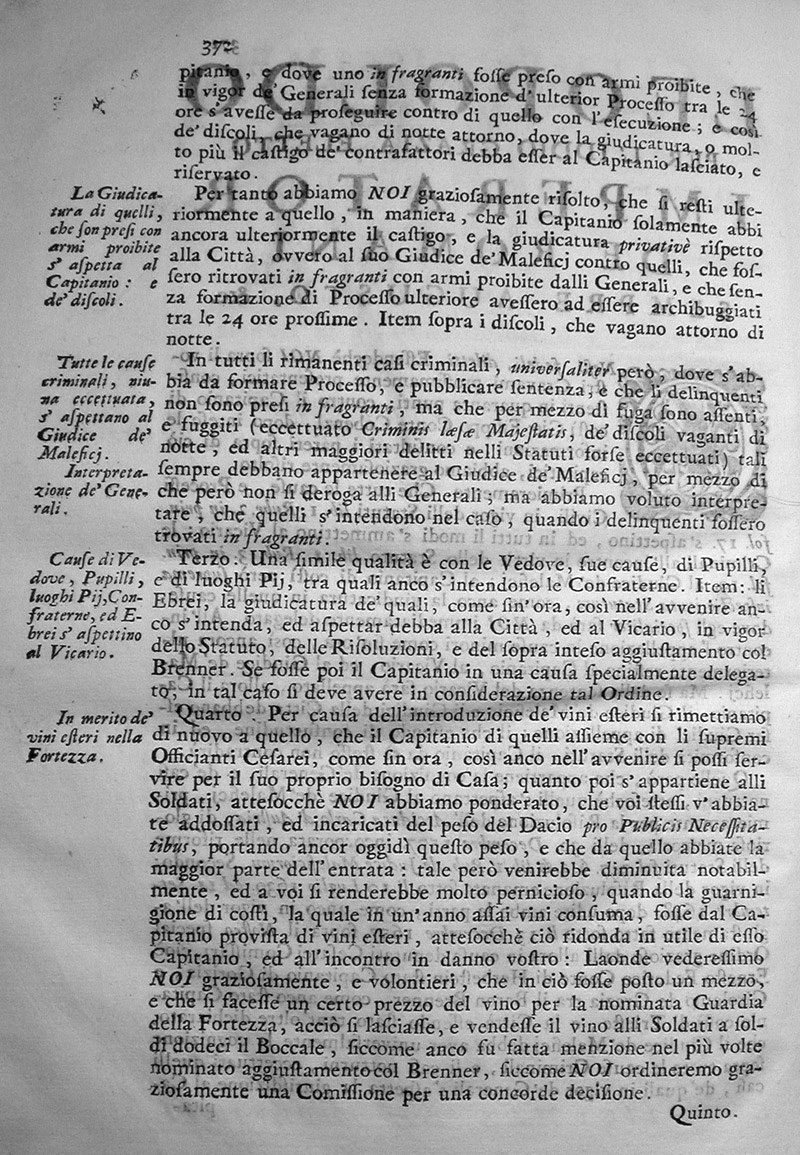 372
pitanio, e dove uno in fragranti foſſe preſo con armi proibite, che
in vigor de' Generali ſenza formazione d' ulterior Proceſſo tra le 24
ore s' aveſſe da proſeguire contro di quello con l'eſecuzione; e così
de' diſcoli, che vagano di notte attorno, dove la giudicatura, o mol-
to più il caſtigo de' contrafattori debba eſſer al Capitanio laſciato, e
riſervato.
La Giudica-
tura di quelli,
che ſon preſi con
armi proibite
s' aſpetta al
Capitanio: e
de' diſcoli.
Per tanto abbiamo NOI grazioſamente riſolto, che ſi reſti ulte-
riormente a quello, in maniera, che il Capitanio ſolamente abbi
ancora ulteriormente il caſtigo, e la giudicatura privativè riſpetto
alla Città, ovvero al ſuo Giudice de' Maleficj contro quelli, che foſ-
ſero ritrovati in fragranti con armi proibite dalli Generali, e che ſen-
za formazione di Proceſſo ulteriore aveſſero ad eſſere archibuggiati
tra le 24 ore proſſime. Item ſopra i diſcoli, che vagano attorno di
notte.
Tutte le cauſe
criminali, niu-
na eccettuata,
s' aſpettano al
Giudice de'
Maleficj.
Interpreta-
zione de' Gene-
rali.
In tutti li rimanenti caſi criminali, univerſaliter però, dove s' ab-
bia da formare Proceſſo, e pubblicare ſentenza, e che li delinquenti
non ſono preſi in fragranti, ma che per mezzo di fuga ſono aſſenti,
e fuggiti (eccettuato Criminis læſæ Majeſtatis, de' diſcoli vaganti di
notte, ed altri maggiori delitti nelli Statuti forſe eccettuati) tali
ſempre debbano appartenere al Giudice de' Maleficj, per mezzo di
che però non ſi deroga alli Generali; ma abbiamo voluto interpre-
tare, che quelli s' intendono nel caſo, quando i delinquenti foſſero
trovati in fragranti.
Cauſe di Ve-
dove, Pupilli,
luoghi Pij, Con-
fraterne, ed E-
brei s' aſpettino
al Vicario.
Terzo. Una ſimile qualità è con le Vedove, ſue cauſe, di Pupilli,
e di luoghi Pij, tra quali anco s' intendono le Confraterne. Item: li
Ebrei, la giudicatura de' quali, come ſin' ora, così nell' avvenire an-
co s' intenda, ed aſpettar debba alla Città, ed al Vicario, in vigor
dello Statuto, delle Riſoluzioni, e del ſopra inteſo aggiuſtamento col
Brenner. Se foſſe poi il Capitanio in una cauſa ſpecialmente delega-
to, in tal caſo ſi deve avere in conſiderazione tal Ordine.
In merito de'
vini eſteri nella
Fortezza.
Quarto. Per cauſa dell' introduzione de' vini eſteri ſi rimettiamo
di nuovo a quello, che il Capitanio di quelli aſſieme con li ſupremi
Officianti Ceſarei, come ſin ora, così anco nell' avvenire ſi poſſi ſer-
vire per il ſuo proprio biſogno di Caſa; quanto poi s' appartiene alli
Soldati, atteſocchè NOI abbiamo ponderato, che voi ſteſſi v' abbia-
te addoſſati, ed incaricati del peſo del Dacio pro Publicis Neceſſita-
tibus, portando ancor oggidì queſto peſo, e che da quello abbiate la
maggior parte dell' entrata: tale però venirebbe diminuita notabil-
mente, ed a voi ſi renderebbe molto pernicioſo, quando la guarni-
gione di coſtì, la quale in un' anno aſſai vini conſuma, foſſe dal Ca-
pitanio proviſta di vini eſteri, atteſocchè ciò ridonda in utile di eſſo
Capitanio, ed all' incontro in danno voſtro: Laonde vedereſſimo
NOI grazioſamente, e volontieri, che in ciò foſſe poſto un mezzo,
e che ſi faceſſe un certo prezzo del vino per la nominata Guardia
della Fortezza, acciò ſi laſciaſſe, e vendeſſe il vino alli Soldati a ſol-
di dodeci il Boccale, ſiccome anco fu fatta menzione nel più volte
nominato aggiuſtamento col Brenner, ſiccome NOI ordineremo gra-
zioſamente una Comiſſione per una concorde deciſione.
Quinto.